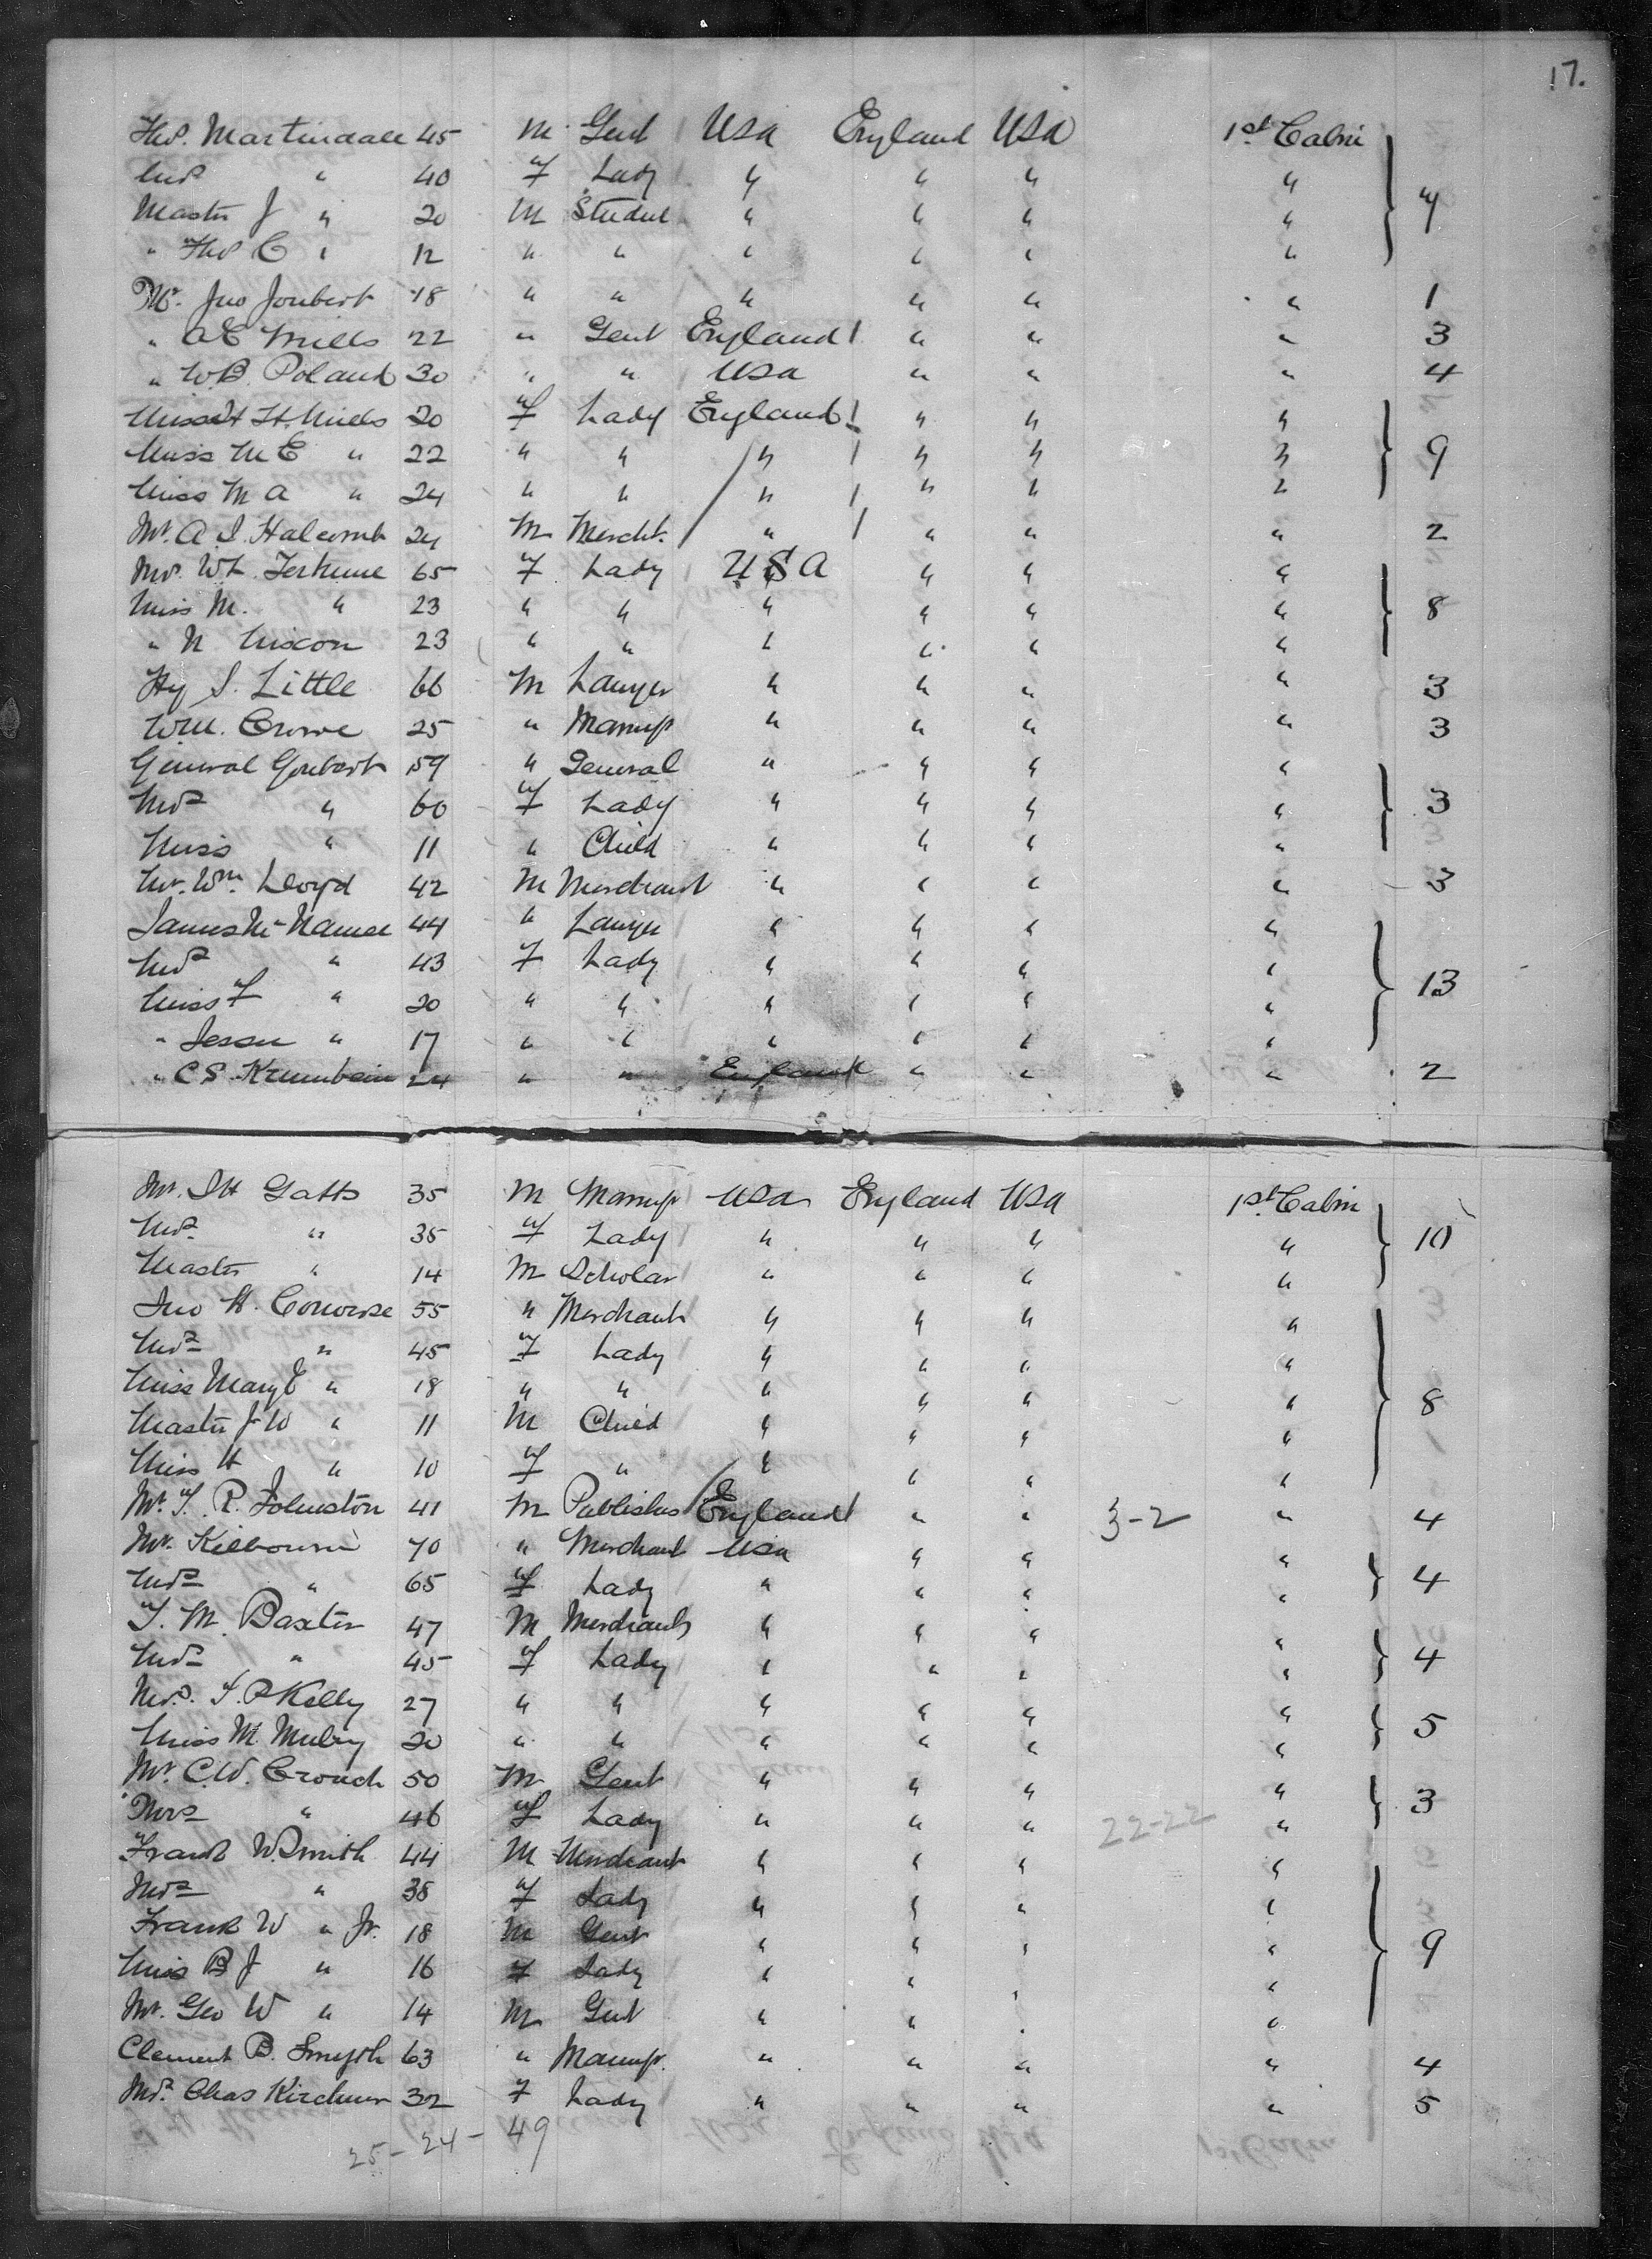 17.
Thos. Martindale 45 M Gent USA England USA 1st Cabin
Mrs " 40 F Lady " " " " } 4
Master J " 20 M Student " " " "
" Thos C " 12 " " " " " "
Mr. Jno Joubert 18 " " " " " " 1
" A E Mills 22 " Gent England 1 " " " 3
" W.B. Poland 30 " " USA " " " 4
Miss H. Mills 20 F Lady England 1 " " "
Miss M E " 22 " " " 1 " " " } 9
Miss M A " 24 " " " 1 " " "
Mr. A. I. Halcomb 24 M Mercht. " 1 " " " 2
Mrs. W L Terhune 65 F Lady USA " " "
Miss M. " 23 " " " " " " } 8
" N Nixon 23 " " " " " "
Hy S. Little 66 M Lawyer " " " " 3
Wm. Crowe 25 " Manuf " " " " 3
General Goubert 59 " General " " " "
Mrs " 60 F Lady " " " " } 3
Miss " 11 " Child " " " "
Mr. Wm. Lloyd 42 M Merchant " " " " 3
James McNamee 44 " Lawyer " " " "
Mrs " 43 F Lady " " " " } 13
Miss F " 20 " " " " " "
" Jessie " 17 " " " " " "
" C S Krumbein 24 " " England " " " 2
Mr. J H Gatts 35 M Manuf USA England USA 1st Cabin
Mrs " 35 F Lady " " " " } 10
Master " 14 M Scholar " " " "
Jno H. Converse 55 " Merchant " " " "
Mrs " 45 F Lady " " " "
Miss Mary E " 18 " " " " " " } 8
Master J W " 11 M Child " " " "
Miss H " 10 F " " " " "
Mr. F. R. Johnston 41 M Publisher England 1 " " 3-2 " 4
Mr. Kilbourne 70 " Merchant USA " " " } 4
Mrs " 65 F Lady " " " "
F. M. Baxter 47 M Merchant " " " " } 4
Mrs " 45 F Lady " " " "
Mrs. F. P Kelly 27 " " " " " " } 5
Miss M. Mulry 20 " " " " " "
Mr. C.W. Crouch 50 M Gent " " " " } 3
Mrs " 46 F Lady " " " 22-22 "
Frank W. Smith 44 M Merchant " " " "
Mrs " 38 F Lady " " " "
Frank W " Jr. 18 M Gent " " " " } 9
Miss B J " 16 F Lady " " " "
Mr. Geo W " 14 M Gent " " " "
Clement B. Smyth 63 " Manuf. " " " " 4
Mrs. Chas Kirchner 32 F Lady " " " " 5
25 - 24 - 49